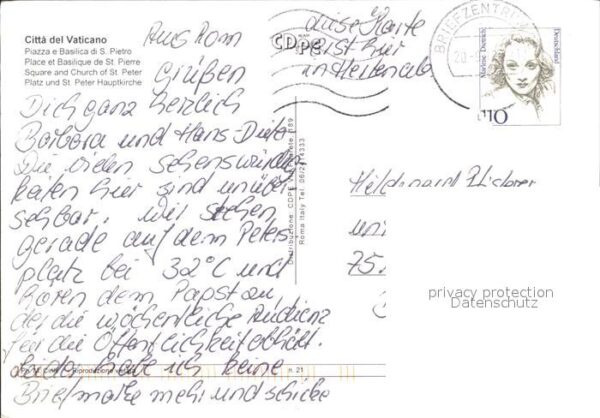 Città del Vaticano
Piazza e Basilica di S. Pietro
Place et Basilique de St. Pierre
Square and Church of St. Peter
Platz und St. Peter Hauptkirche
Aus Rom
Grüßen
Dich ganz herzlich
Barbara und Hans-Dieter
Die vielen Sehenswürdig
keiten hier sind unüber
sehbar. Wir stehen
gerade auf dem Peters
platz bei 32°C und
hören dem Papst zu,
der die wöchentliche Audienz
für die Öffentlichkeit abhält.
Leider habe ich keine
Briefmarke mehr und schicke
diese Karte
erst hier
in
CDPE
BRIEFZENTRUM
Marlene Dietrich
Deutschland
110
Distribuzione: CDPE
Roma Italy Tel.
Hildegard
75
privacy protection
Datenschutz
Riproduzione vietata
n. 21